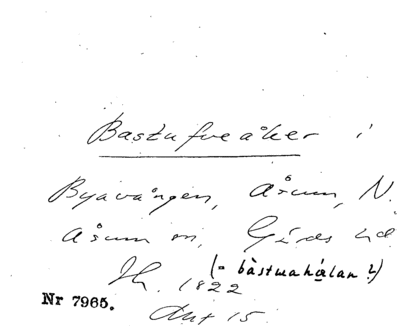 Bastufveåker i
Byavången, Åsum, N.
Åsum sn, Gärds hd
(= bàstuahɑ́lan ?)
Ih. 1822
Nr 7965.
Akt 15